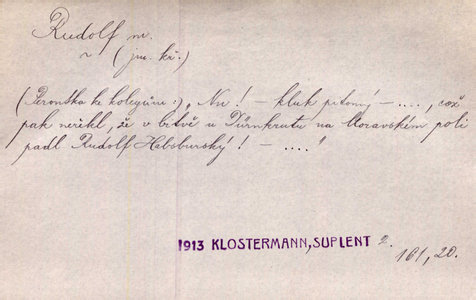 Rudolf m.
~ (jm. kř.)
( ke kolegům:) „Nu! – kluk pitomý – ...., což
pak neřekl, že v bitvě u Dürnkrutu na Moravském poli
padl Rudolf Habsburský! – ...."
1913 KLOSTERMANN, SUPLENT 2.
161, 20.